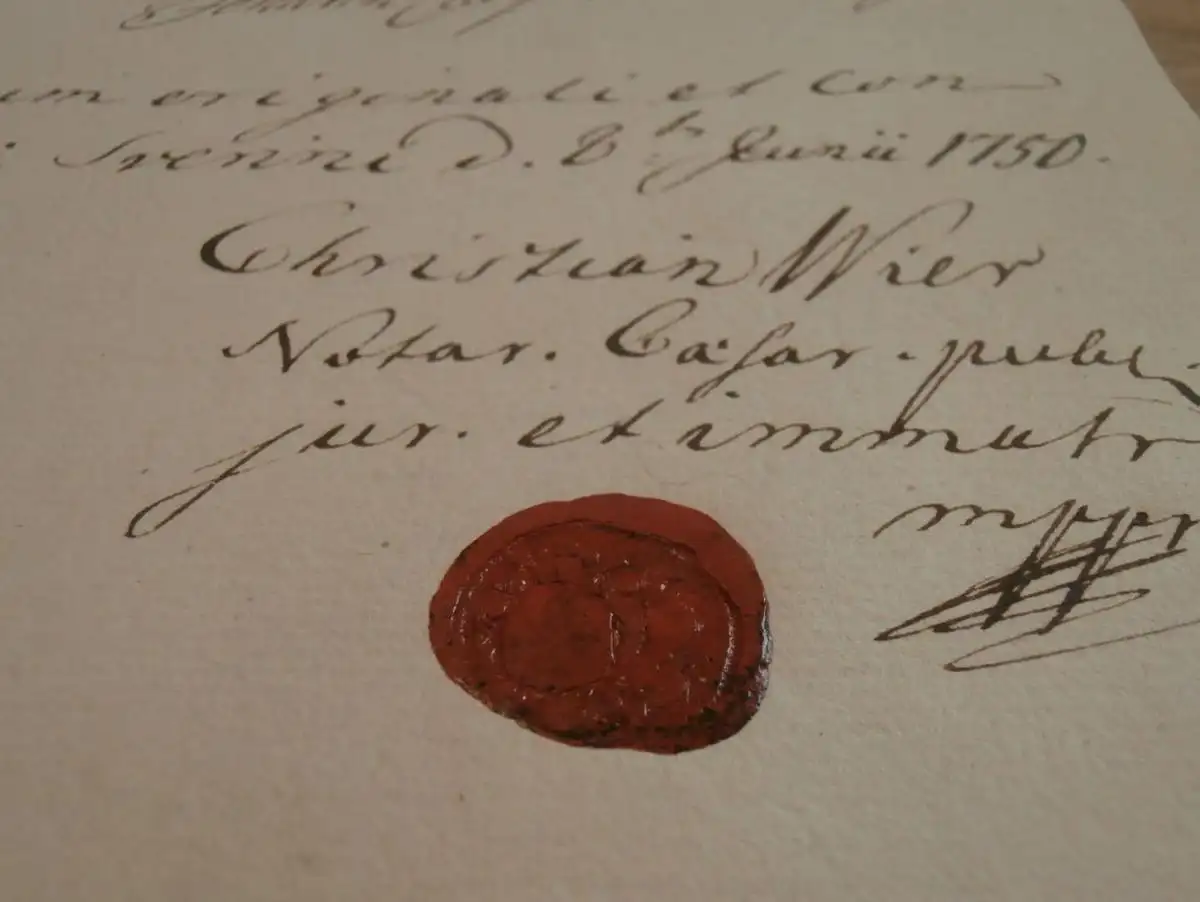 um originali et con
d. 8 t. Junii 1750.
Christian Wier
Notar. Cæsar. publ.
jur. et immatr
mppr